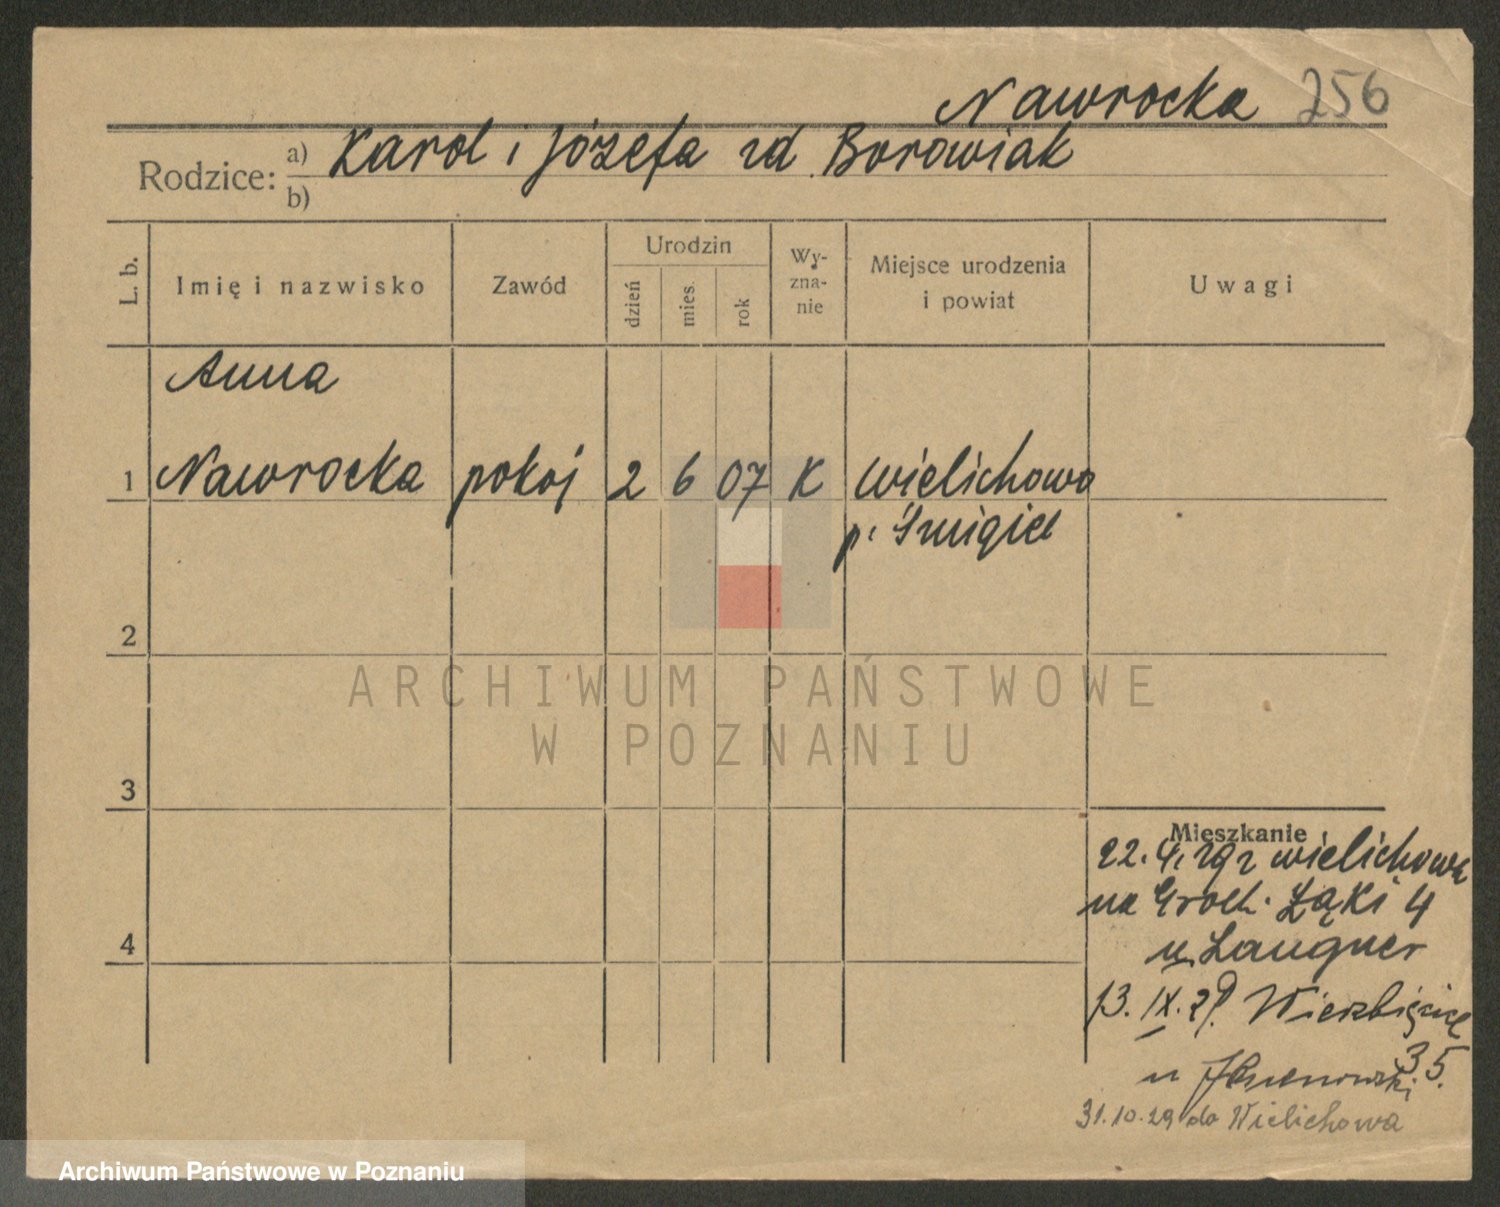 Nawrocka 256
Rodzice: a) Karol i Józefa zd. Borowiak
b)
L. b. Imię i nazwisko Zawód Urodzin dzień mies. rok Wyznanie Miejsce urodzenia i powiat Uwagi
Anna
1 Nawrocka pokoj 2 6 07 K Wielichowo
p. Śmigiel
2
ARCHIWUM PAŃSTWOWE
W POZNANIU
3
Mieszkanie
22.4.29 z Wielichowa
na Groch. Łąki 4
u Laugner
13. IX. 29. Wierzbięcice
35.
u
31.10.29 do Wielichowa
4
Archiwum Państwowe w Poznaniu